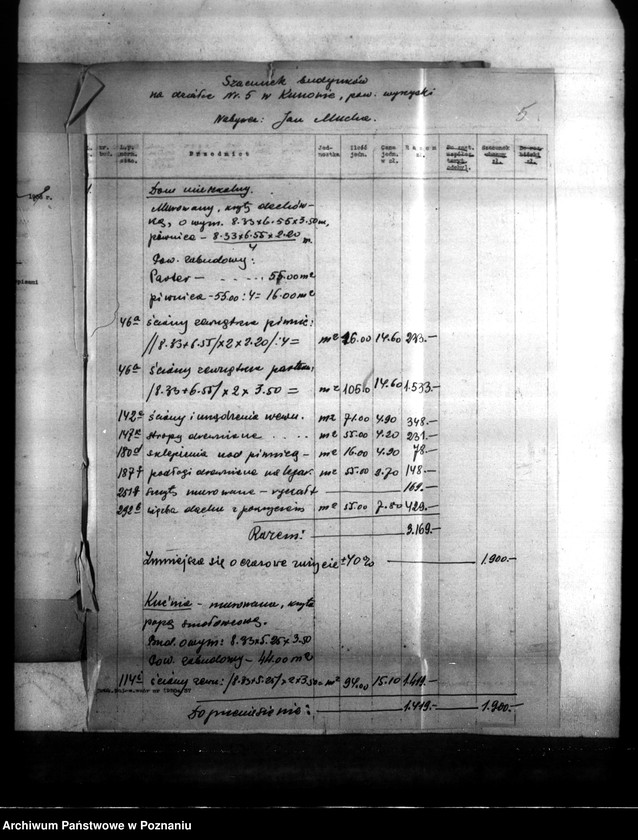 Szacunek budynków
na działce Nr. 5 w Kunowie, pow. wyrzyski
Nabywca: Jan Mucha.
5
Przedmiot Jednostka Ilość jedn. Cena jedn. w zł. Razem zł. Szacunek
1. Dom mieszkalny.
Murowany, kryty dachów-
ką, o wym. 8.33×6.55×3.50 m,
piwnica - 8.33×6.55×2.20 m.
4
Pow. zabudowy:
Parter - . . . . . 55.00 m²
piwnica - 55.00 : 4 = 16.00 m²
46a ściany zewnętrzne piwnic:
//8.33+6.55/×2×2.20/:4= m² 16.00 14.60 233.-
46a ściany zewnętrzne parteru,
/8.33+6.55/×2×3.50 = m² 105.0 14.60 1.533.-
142e ściany i urządzenia wewn. m² 71.00 4.90 348.-
147a stropy drewniane . . . . m² 55.00 4.20 231.-
180d sklepienia nad piwnicą - m² 16.00 4.90 78.-
187f podłogi drewniane na legar. m² 55.00 2.70 148.-
251f murowane - ryczałt 169.-
292b więźba dachu z pokryciem m² 55.00 7.80 429.-
Razem: 3.169.-
Zmniejsza się o czasowe zużycie ±40% 1.900.-
Kuźnia - murowana, kryta
papą smołowcową.
Bud. o wym: 8.33×5.25×3.50
Pow. zabudowy - 44.00 m²
114c ściany zewn: /8.33+5.25/×2×3.50= m² 94.00 15.10 1.419.-
Do przeniesienia: 1.419.- 1.900.-
Archiwum Państwowe w Poznaniu